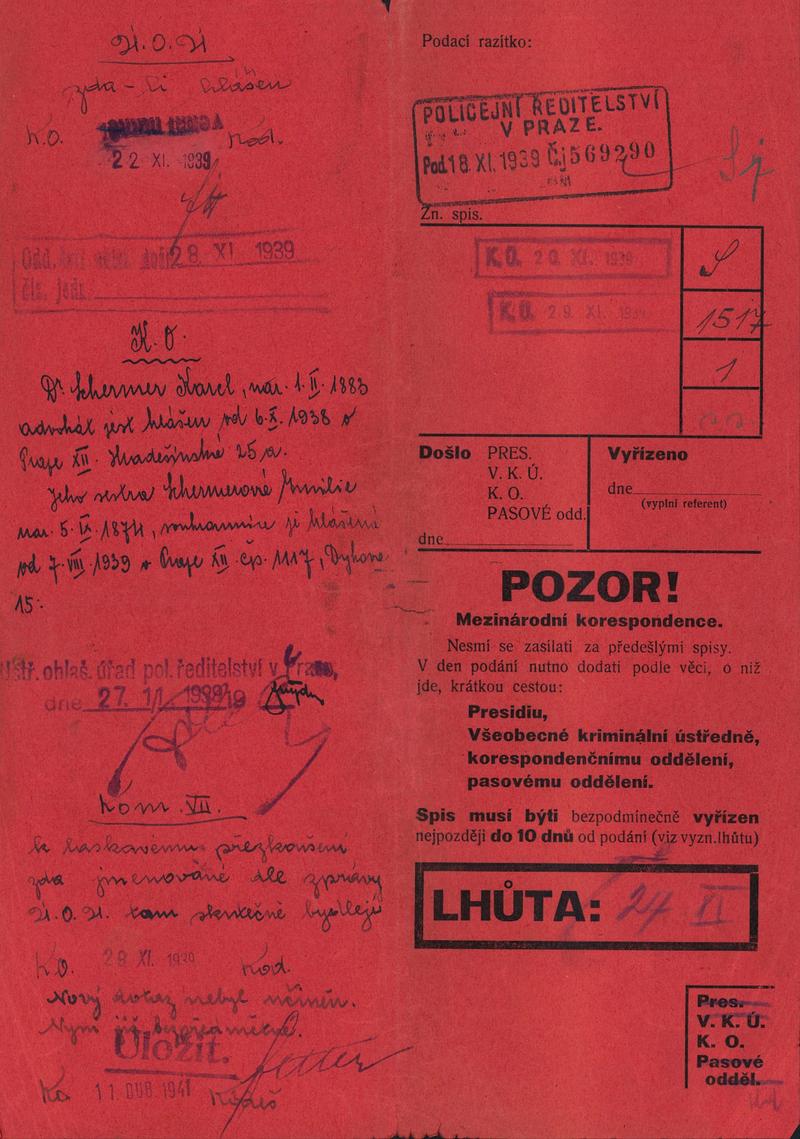 Ú.O.Ú
zda-li hlášen
K.O.
22 XI. 1939
28. XI 1939
čís. jedn.
K.O.
Dr. Schermer Karel, nar. 1.II.1883
advokát jest hlášen od 6.X.1938 v
Praze XII. Hradešínská 25a.
Jeho sestra Schermerová Emilie
nar. 5.IX.1874, soukromnice je hlášena
od 7.VIII.1939 v Praze XII čp. 1117,
15.
Ústř. ohlaš. úřad pol. ředitelství v Praze,
dne 27. 11. 1939
Kom. VII.
k laskavému přezkoušení
zda jmenované dle zprávy
Ú.O.Ú. tam skutečně bydlejí
K.O. 28 XI. 1939
Nový dotaz nebyl učiněn.
Nyní již bezpředmětné.
Uložit.
11 DUB 1941
Podací razítko:
POLICEJNÍ ŘEDITELSTVÍ
V PRAZE.
Pod. 18. XI. 1939 Čj 569290
Zn. spis.
K.O. 20 XI. 1939
K.O. 29. XI. 1939
S
1517
1
Došlo PRES.
V. K. Ú.
K. O.
PASOVÉ odd.
dne
Vyřízeno
dne
(vyplní referent)
POZOR!
Mezinárodní korespondence.
Nesmí se zasílati za předešlými spisy.
V den podání nutno dodati podle věci, o niž
jde, krátkou cestou:
Presidiu,
Všeobecné kriminální ústředně,
korespondenčnímu oddělení,
pasovému oddělení.
Spis musí býti bezpodmínečně vyřízen
nejpozději do 10 dnů od podání (viz vyzn. lhůtu)
LHŮTA: 24 XI
Pres.
V. K. Ú.
K. O.
Pasové
odděl.